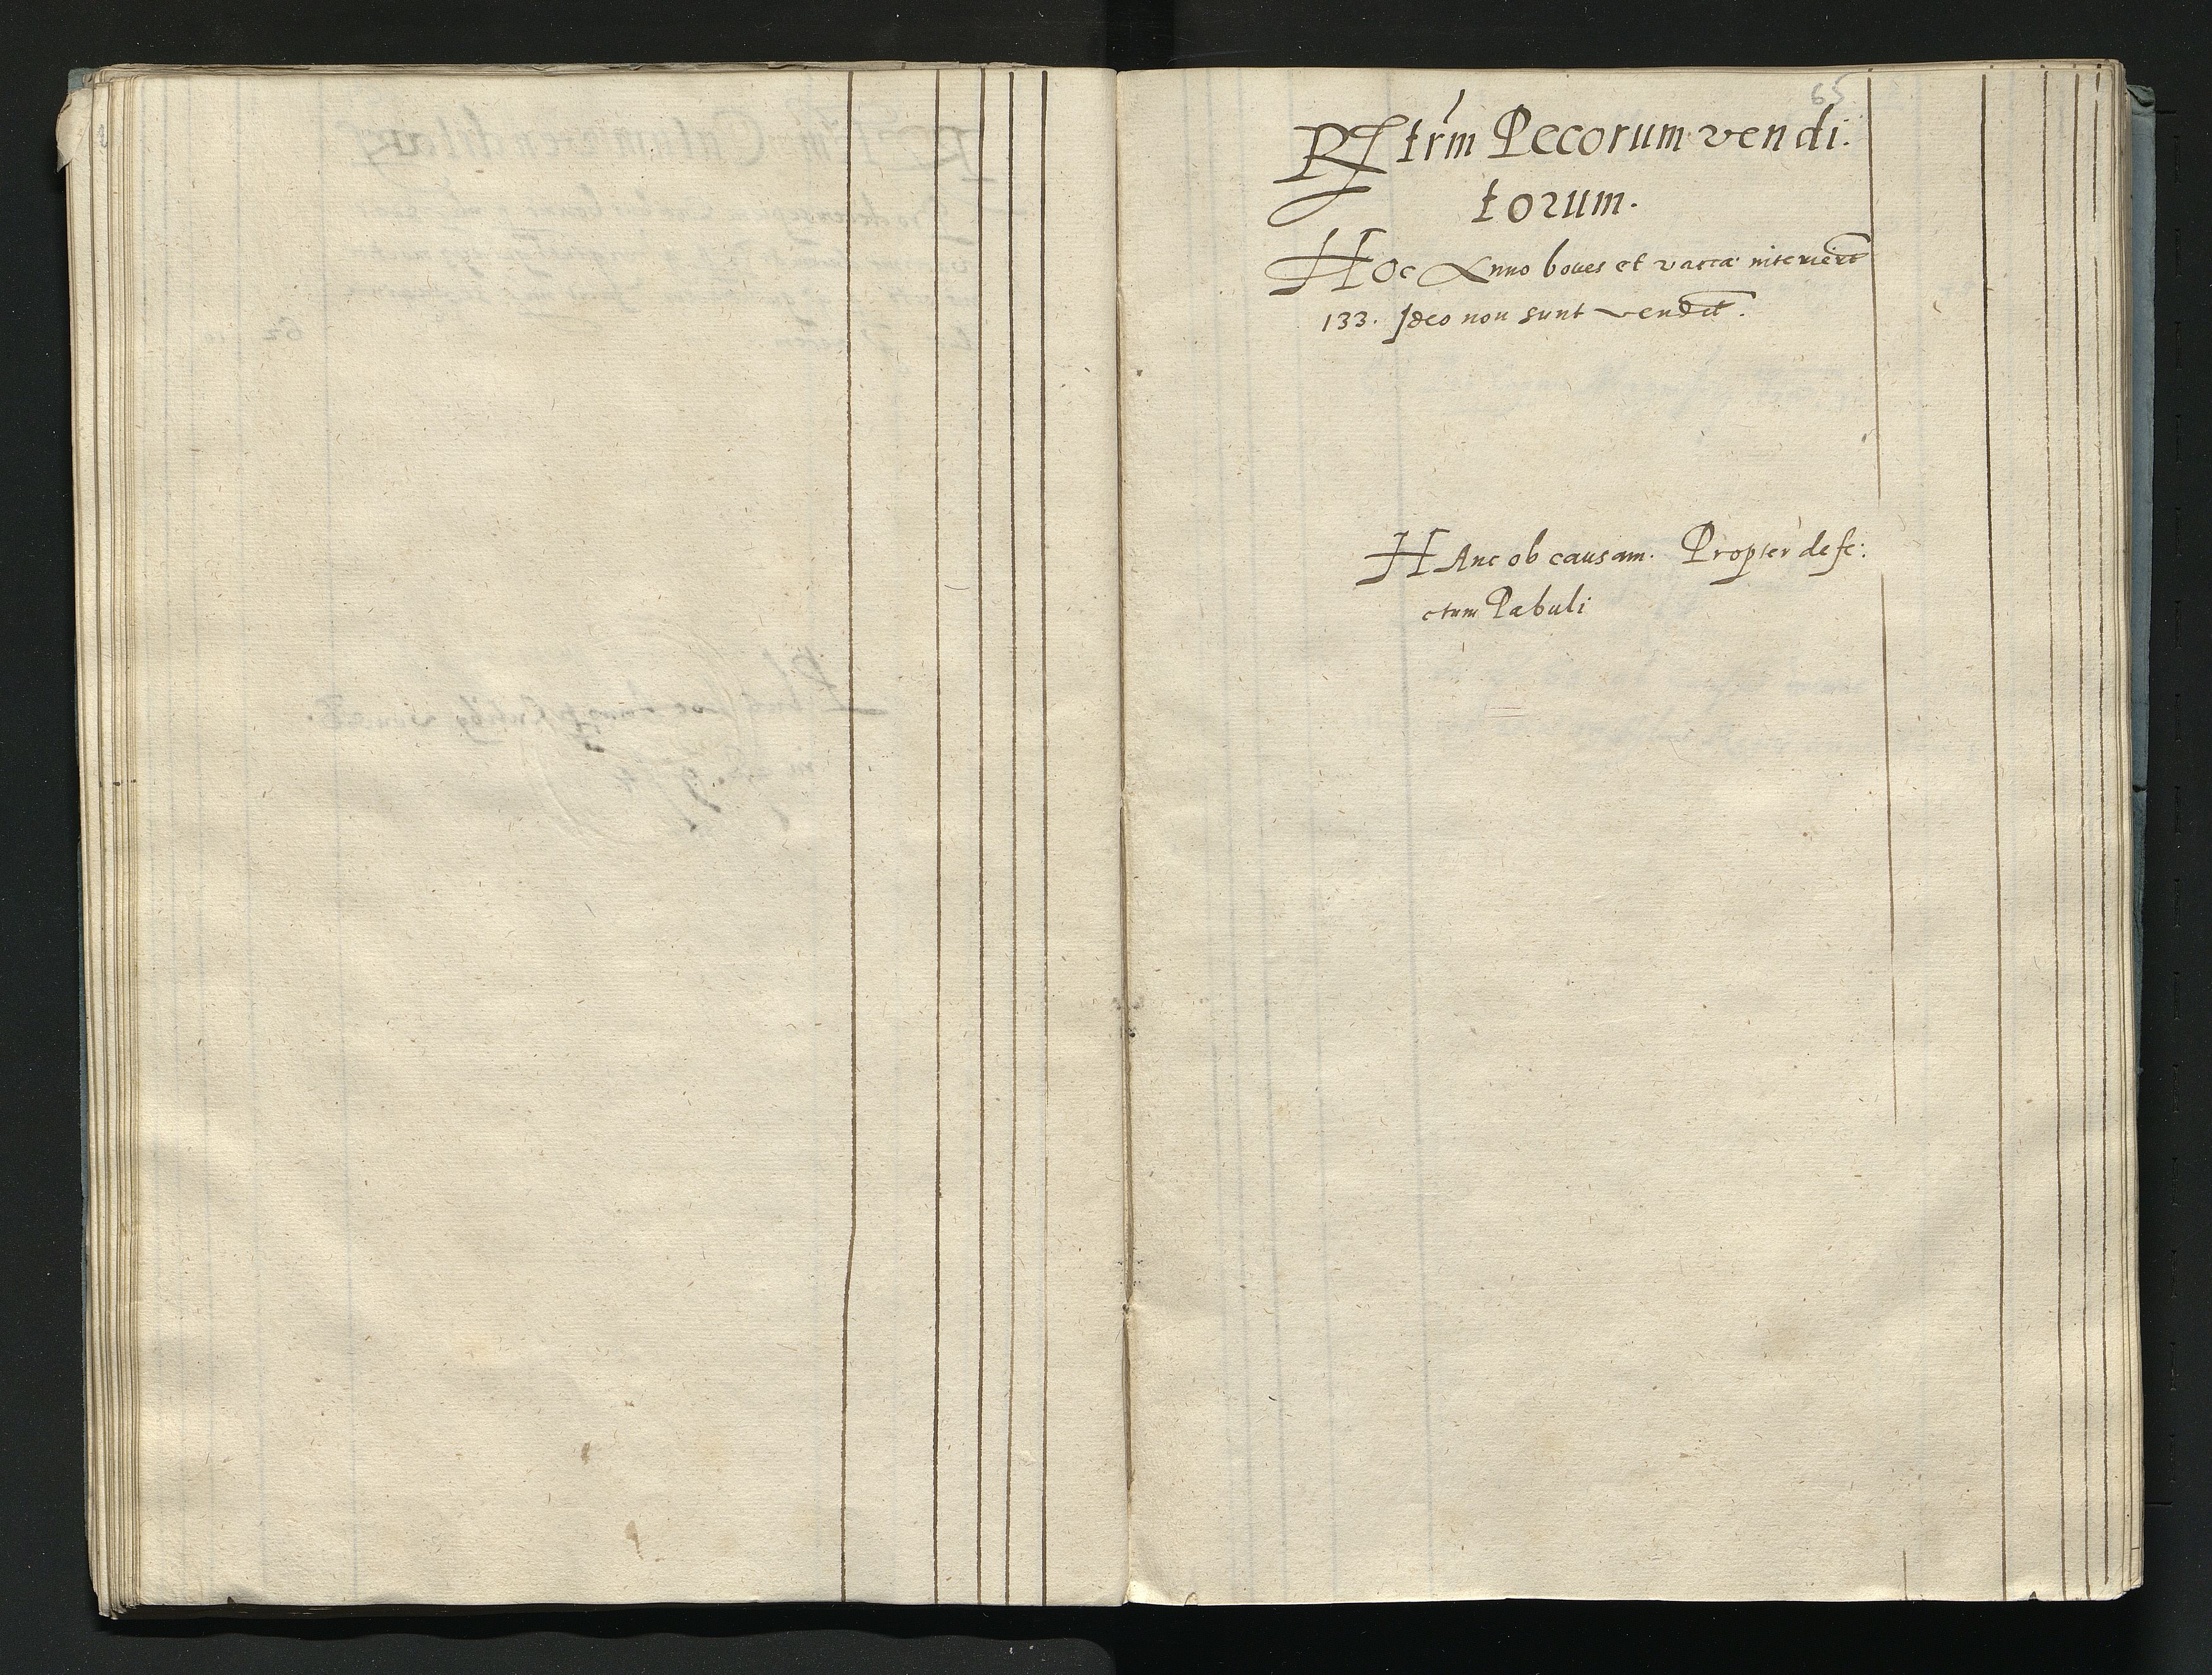 65
Rstrm Pecorum vendi:
torum.
Hoc Anno boves et vaccæ interierūt
133. Ideo non sunt vendit.
HAnc ob causam. Propter defe:
ctum Pabuli